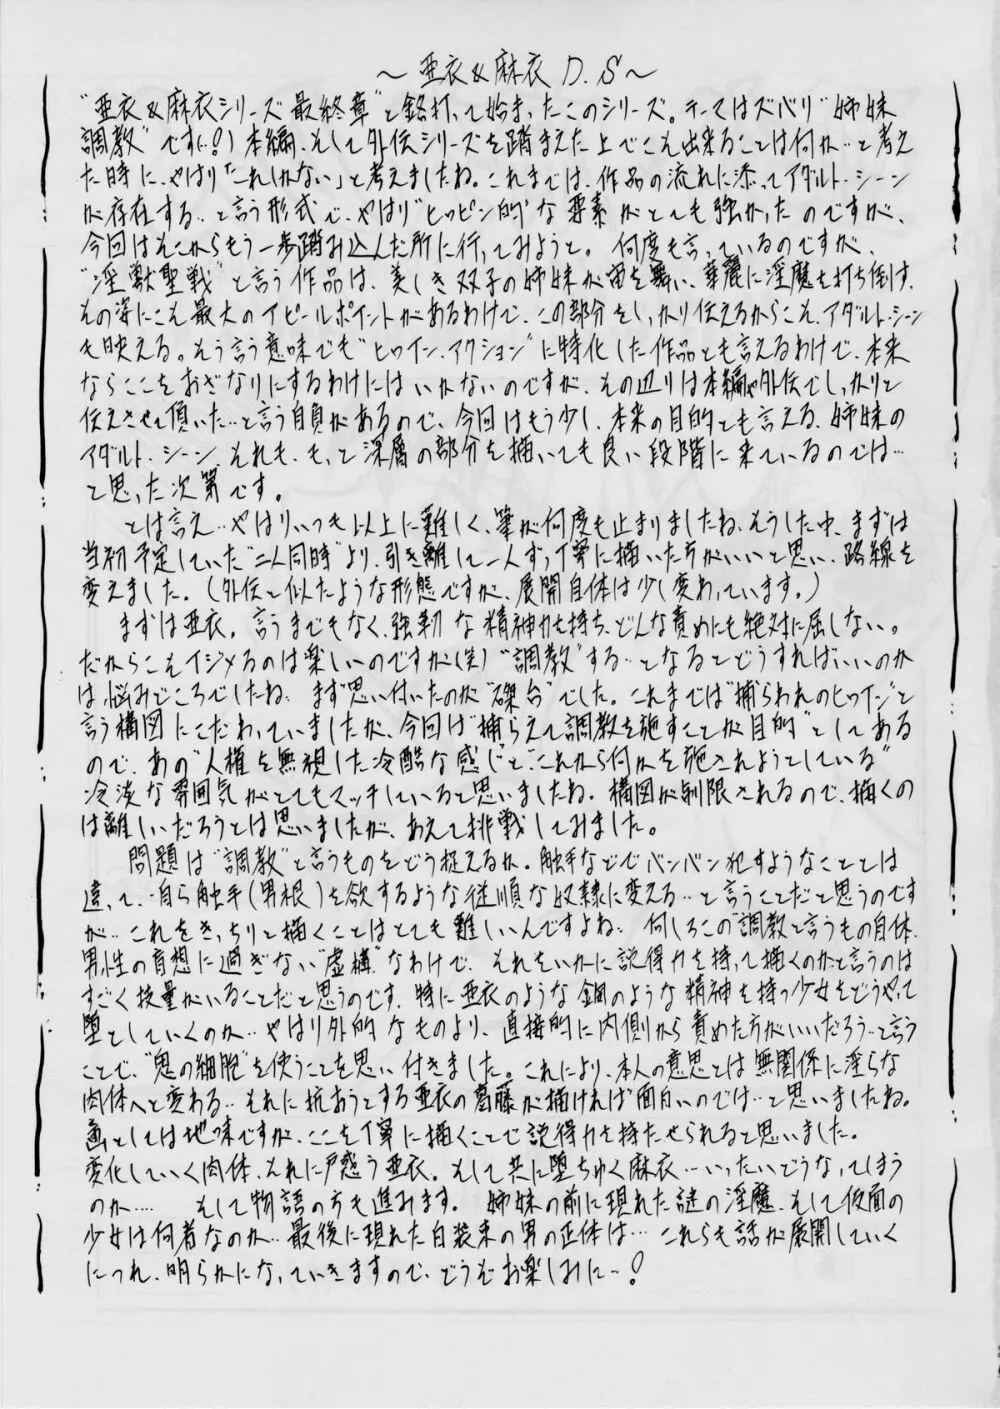 ～亜衣&麻衣 D.S～
"亜衣&麻衣シリーズ最終章"と銘打って始まったこのシリーズ。テーマはズバリ"姉妹
調教"です(!?)本編、そして外伝シリーズを踏まえた上でこそ出来ることは何か…と考え
た時に、やはり「これしかない」と考えましたね。これまでは、作品の流れに添ってアダルト・シーン
が存在する…と言う形式で、やはり"ヒロピン的"な要素がとても強かったのですが、
今回はそこからもう一歩踏み込んだ所に行ってみようと。何度も言っているのですが、
"淫獣聖戦"と言う作品は、美しき双子の姉妹が宙を舞い、華麗に淫魔を打ち倒す、
その姿にこそ最大のアピールポイントがあるわけで、この部分をしっかり伝えるからこそ、アダルト・シーン
も映える。そう言う意味でも"ヒロイン・アクション"に特化した作品とも言えるわけで、本来
ならここをおざなりにするわけにはいかないのですが、その辺りは本編や外伝でしっかりと
伝えさせて頂いた…と言う自負があるので、今回はもう少し、本来の目的とも言える、姉妹の
アダルト・シーン、それも、もっと深層の部分を描いても良い段階に来ているのでは…
と思った次第です。
とは言え…やはりいつも以上に難しく、筆が何度も止まりましたね、そうした中、まずは
当初予定していた"二人同時"より、引き離して一人ずつ丁寧に描いた方がいいと思い、路線を
変えました。(外伝と似たような形態ですが、展開自体は少し変わっています。)
まずは亜衣。言うまでもなく、強靭な精神力を持ち、どんな責めにも絶対に屈しない。
だからこそイジメるのは楽しいのですが(笑)"調教"する…となるとどうすればいいのか
は悩みどころでしたね。まず思い付いたのが"磔台"でした。これまでは"捕らわれのヒロイン"と
言う構図にこだわっていましたが、今回は"捕らえて調教を施すことが目的"としてある
ので、あの"人権を無視した冷酷な感じ"と"これから何かを施されようとしている"
冷淡な雰囲気がとてもマッチしていると思いましたね。構図が制限されるので、描くの
は難しいだろうとは思いましたが、あえて挑戦してみました。
問題は"調教"と言うものをどう捉えるか。触手などでバンバン犯すようなこととは
違って、自ら触手(男根)を欲するような従順な奴隷に変える…と言うことだと思うのです
が…これをきっちりと描くことはとても難しいんですよね。何しろこの"調教"と言うもの自体、
男性の盲想に過ぎない"虚構"なわけで、それをいかに説得力を持って描くのかと言うのは
すごく技量がいることだと思うのです。特に亜衣のような鋼のような精神を持つ少女をどうやって
堕としていくのか…やはり外的なものより、直接的に内側から責めた方がいいだろう…と言う
ことで、"鬼の細胞"を使うことを思い付きました。これにより、本人の意思とは無関係に淫らな
肉体へと変わる…それに抗おうとする亜衣の葛藤が描ければ面白いのでは…と思いましたね。
画としては地味ですが、ここを丁寧に描くことで説得力を持たせられると思いました。
変化していく肉体、それに戸惑う亜衣。そして共に堕ちゆく麻衣…いったいどうなってしまう
のか…… そして物語の方も進みます。姉妹の前に現れた謎の淫魔、そして仮面の
少女は何者なのか…最後に現れた白装束の男の正体は… これらも話が展開していく
につれ、明らかになっていきますので、どうぞお楽しみに～!